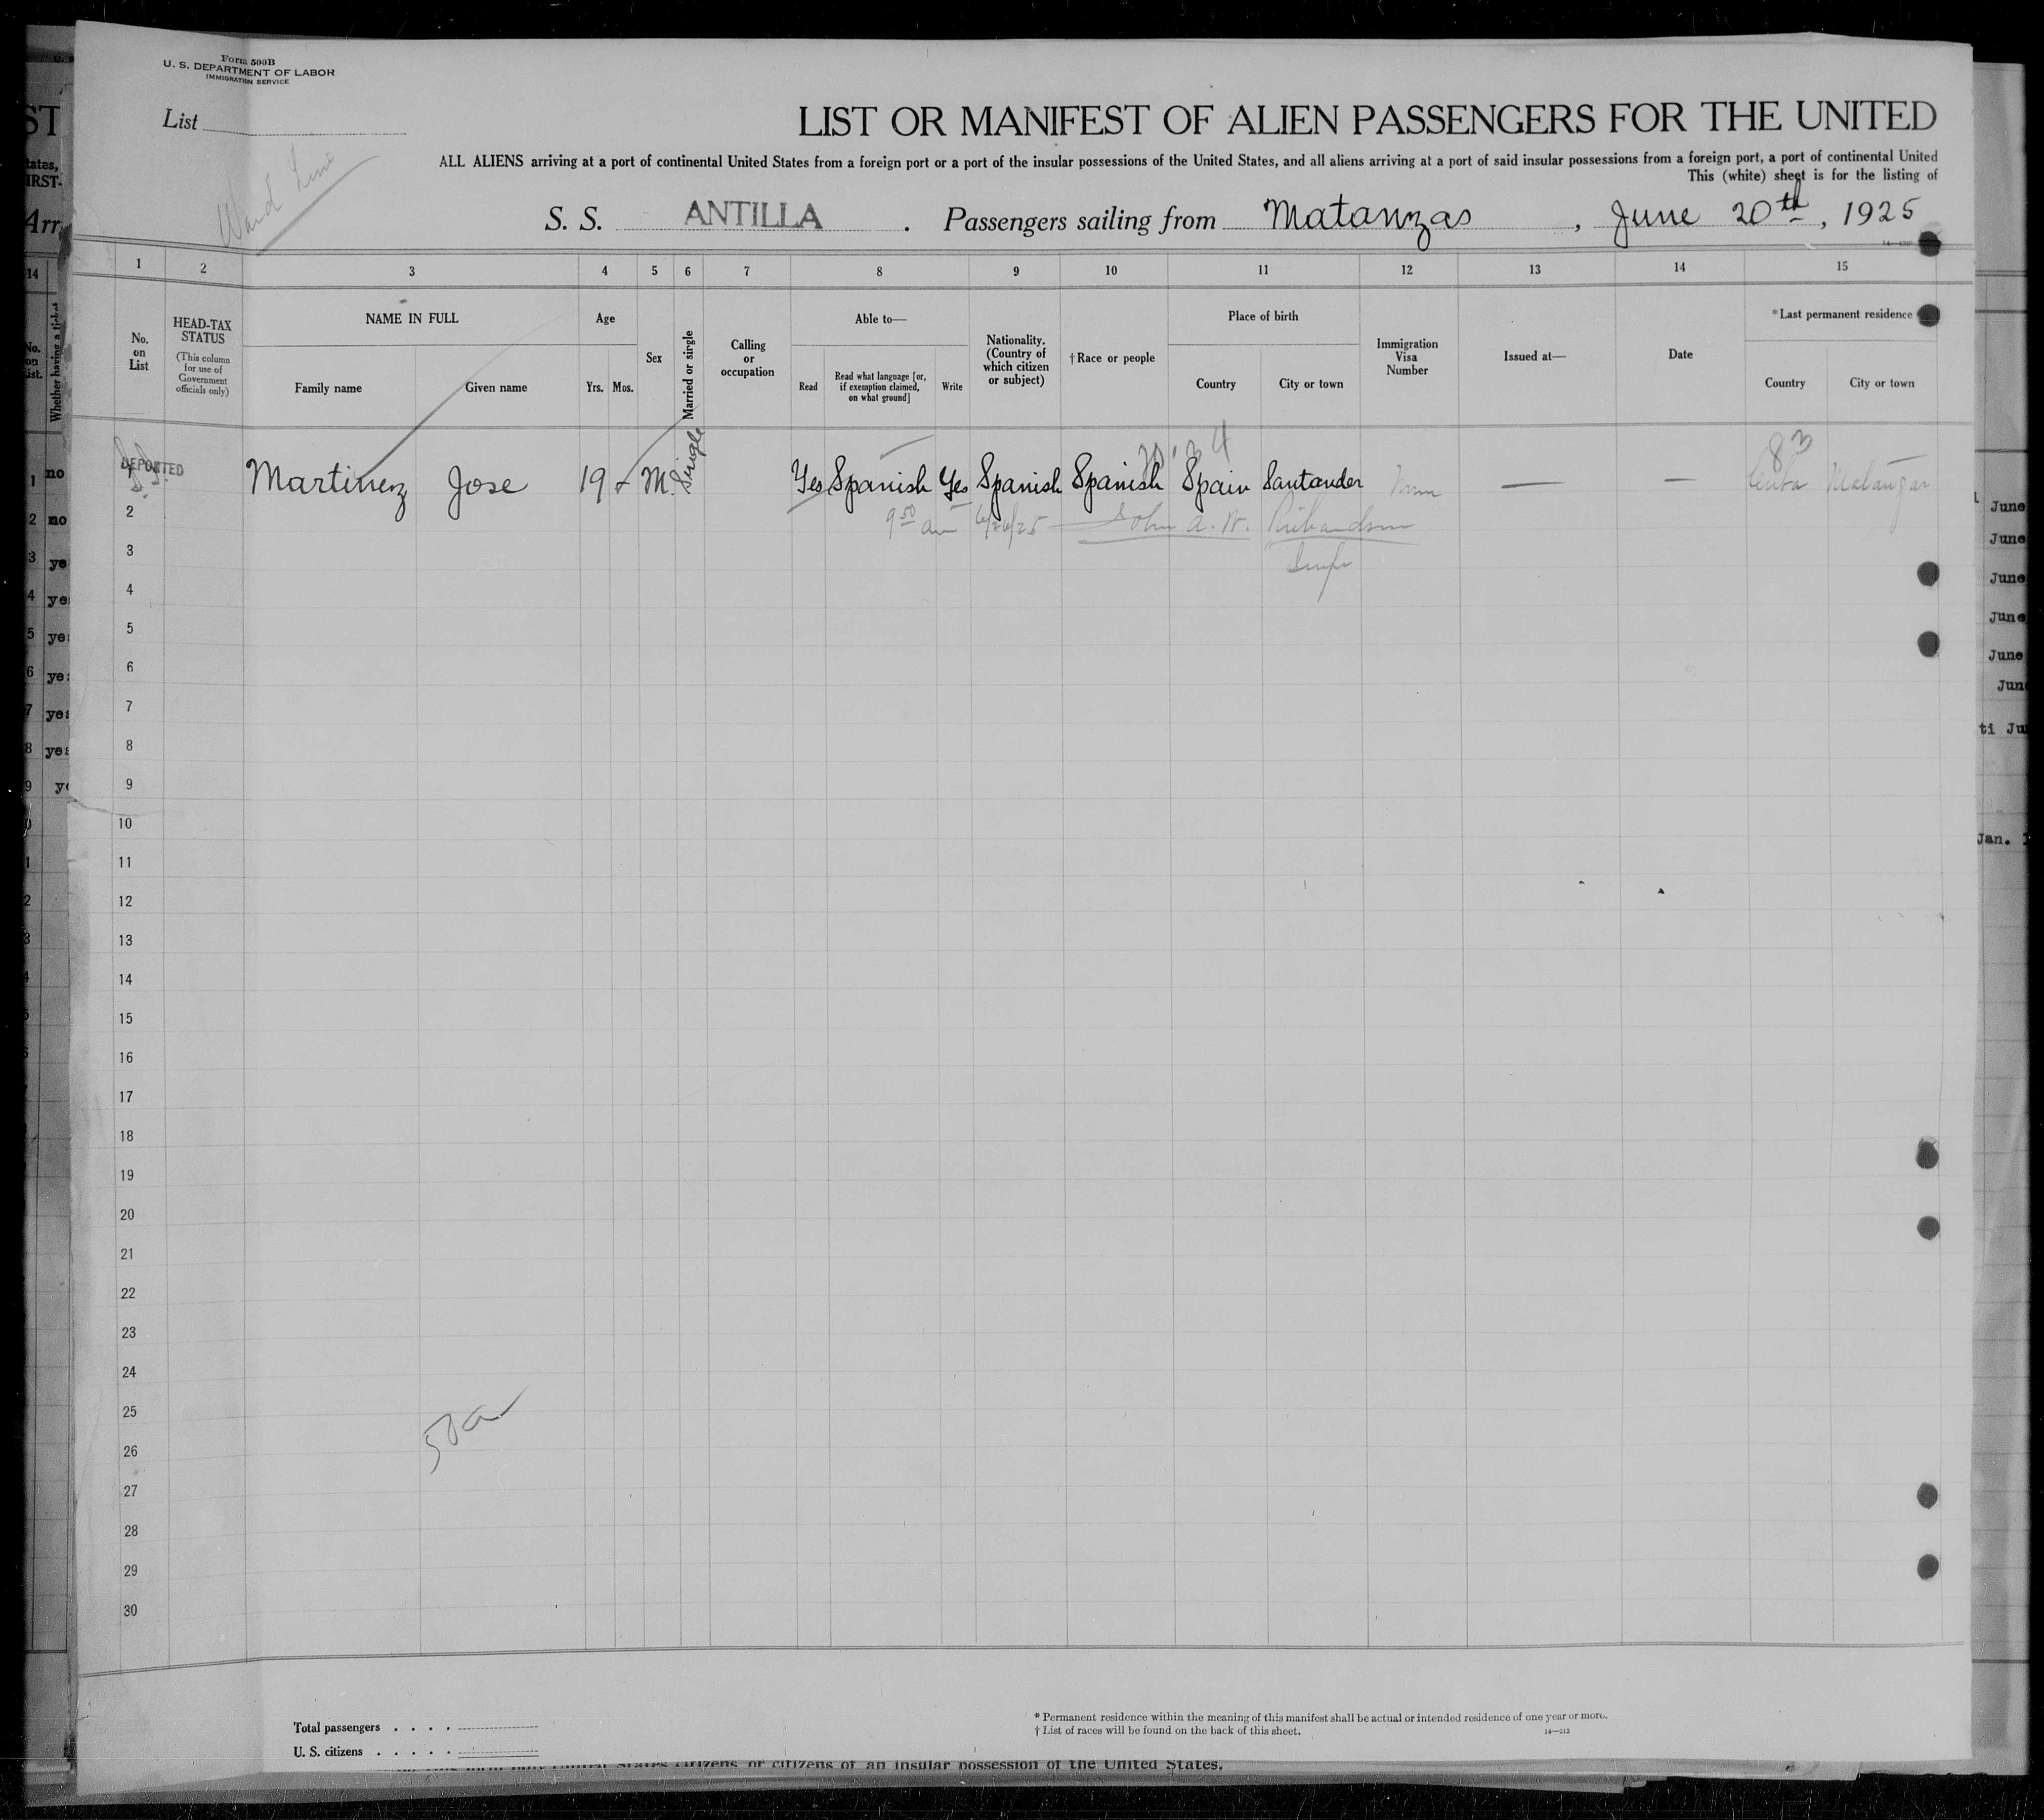 Form 500B
U. S. DEPARTMENT OF LABOR
IMMIGRATION SERVICE
List
Ward Line
LIST OR MANIFEST OF ALIEN PASSENGERS FOR THE UNITED
ALL ALIENS arriving at a port of continental United States from a foreign port or a port of the insular possessions of the United States, and all aliens arriving at a port of said insular possessions from a foreign port, a port of continental United
This (white) sheet is for the listing of
S. S. ANTILLA . Passengers sailing from Matanzas , June 20th , 1925
1 2 3 4 5 6 7 8 9 10 11 12 13 14 15
No. on List
HEAD-TAX STATUS
(This column for use of Government officials only)
NAME IN FULL
Family name Given name
Age
Yrs. Mos.
Sex
Married or single
Calling or occupation
Able to—
Read
Read what language [or, if exemption claimed, on what ground]
Write
Nationality. (Country of which citizen or subject)
† Race or people
Place of birth
Country City or town
Immigration Visa Number
Issued at—
Date
*Last permanent residence
Country City or town
83
DEPORTED
1 Martinez Jose 19 M. Single Yes Spanish Yes Spanish Spanish Spain Santander — — Cuba Matanzas
2 9 50 am 6/26/25 John A. W. Richardson
3 Insp
4
5
6
7
8
9
10
11
12
13
14
15
16
17
18
19
20
21
22
23
24
25
26
27
28
29
30
Total passengers . . . .
U. S. citizens . . . . .
* Permanent residence within the meaning of this manifest shall be actual or intended residence of one year or more.
† List of races will be found on the back of this sheet.
14—213
citizens or citizens of an insular possession of the United States.